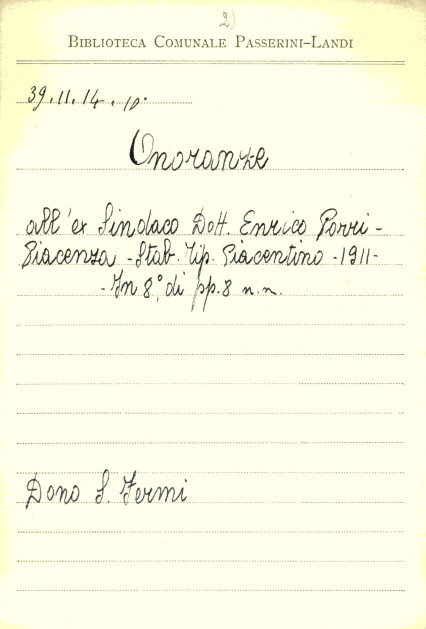 2)
BIBLIOTECA COMUNALE PASSERINI-LANDI
39.11.14.10.
Onoranze
all'ex Sindaco Dott. Enrico Porri -
Piacenza - Stab. Tip. Piacentino - 1911 -
- In 8°, di pp. 8 n.n.
Dono S. Fermi